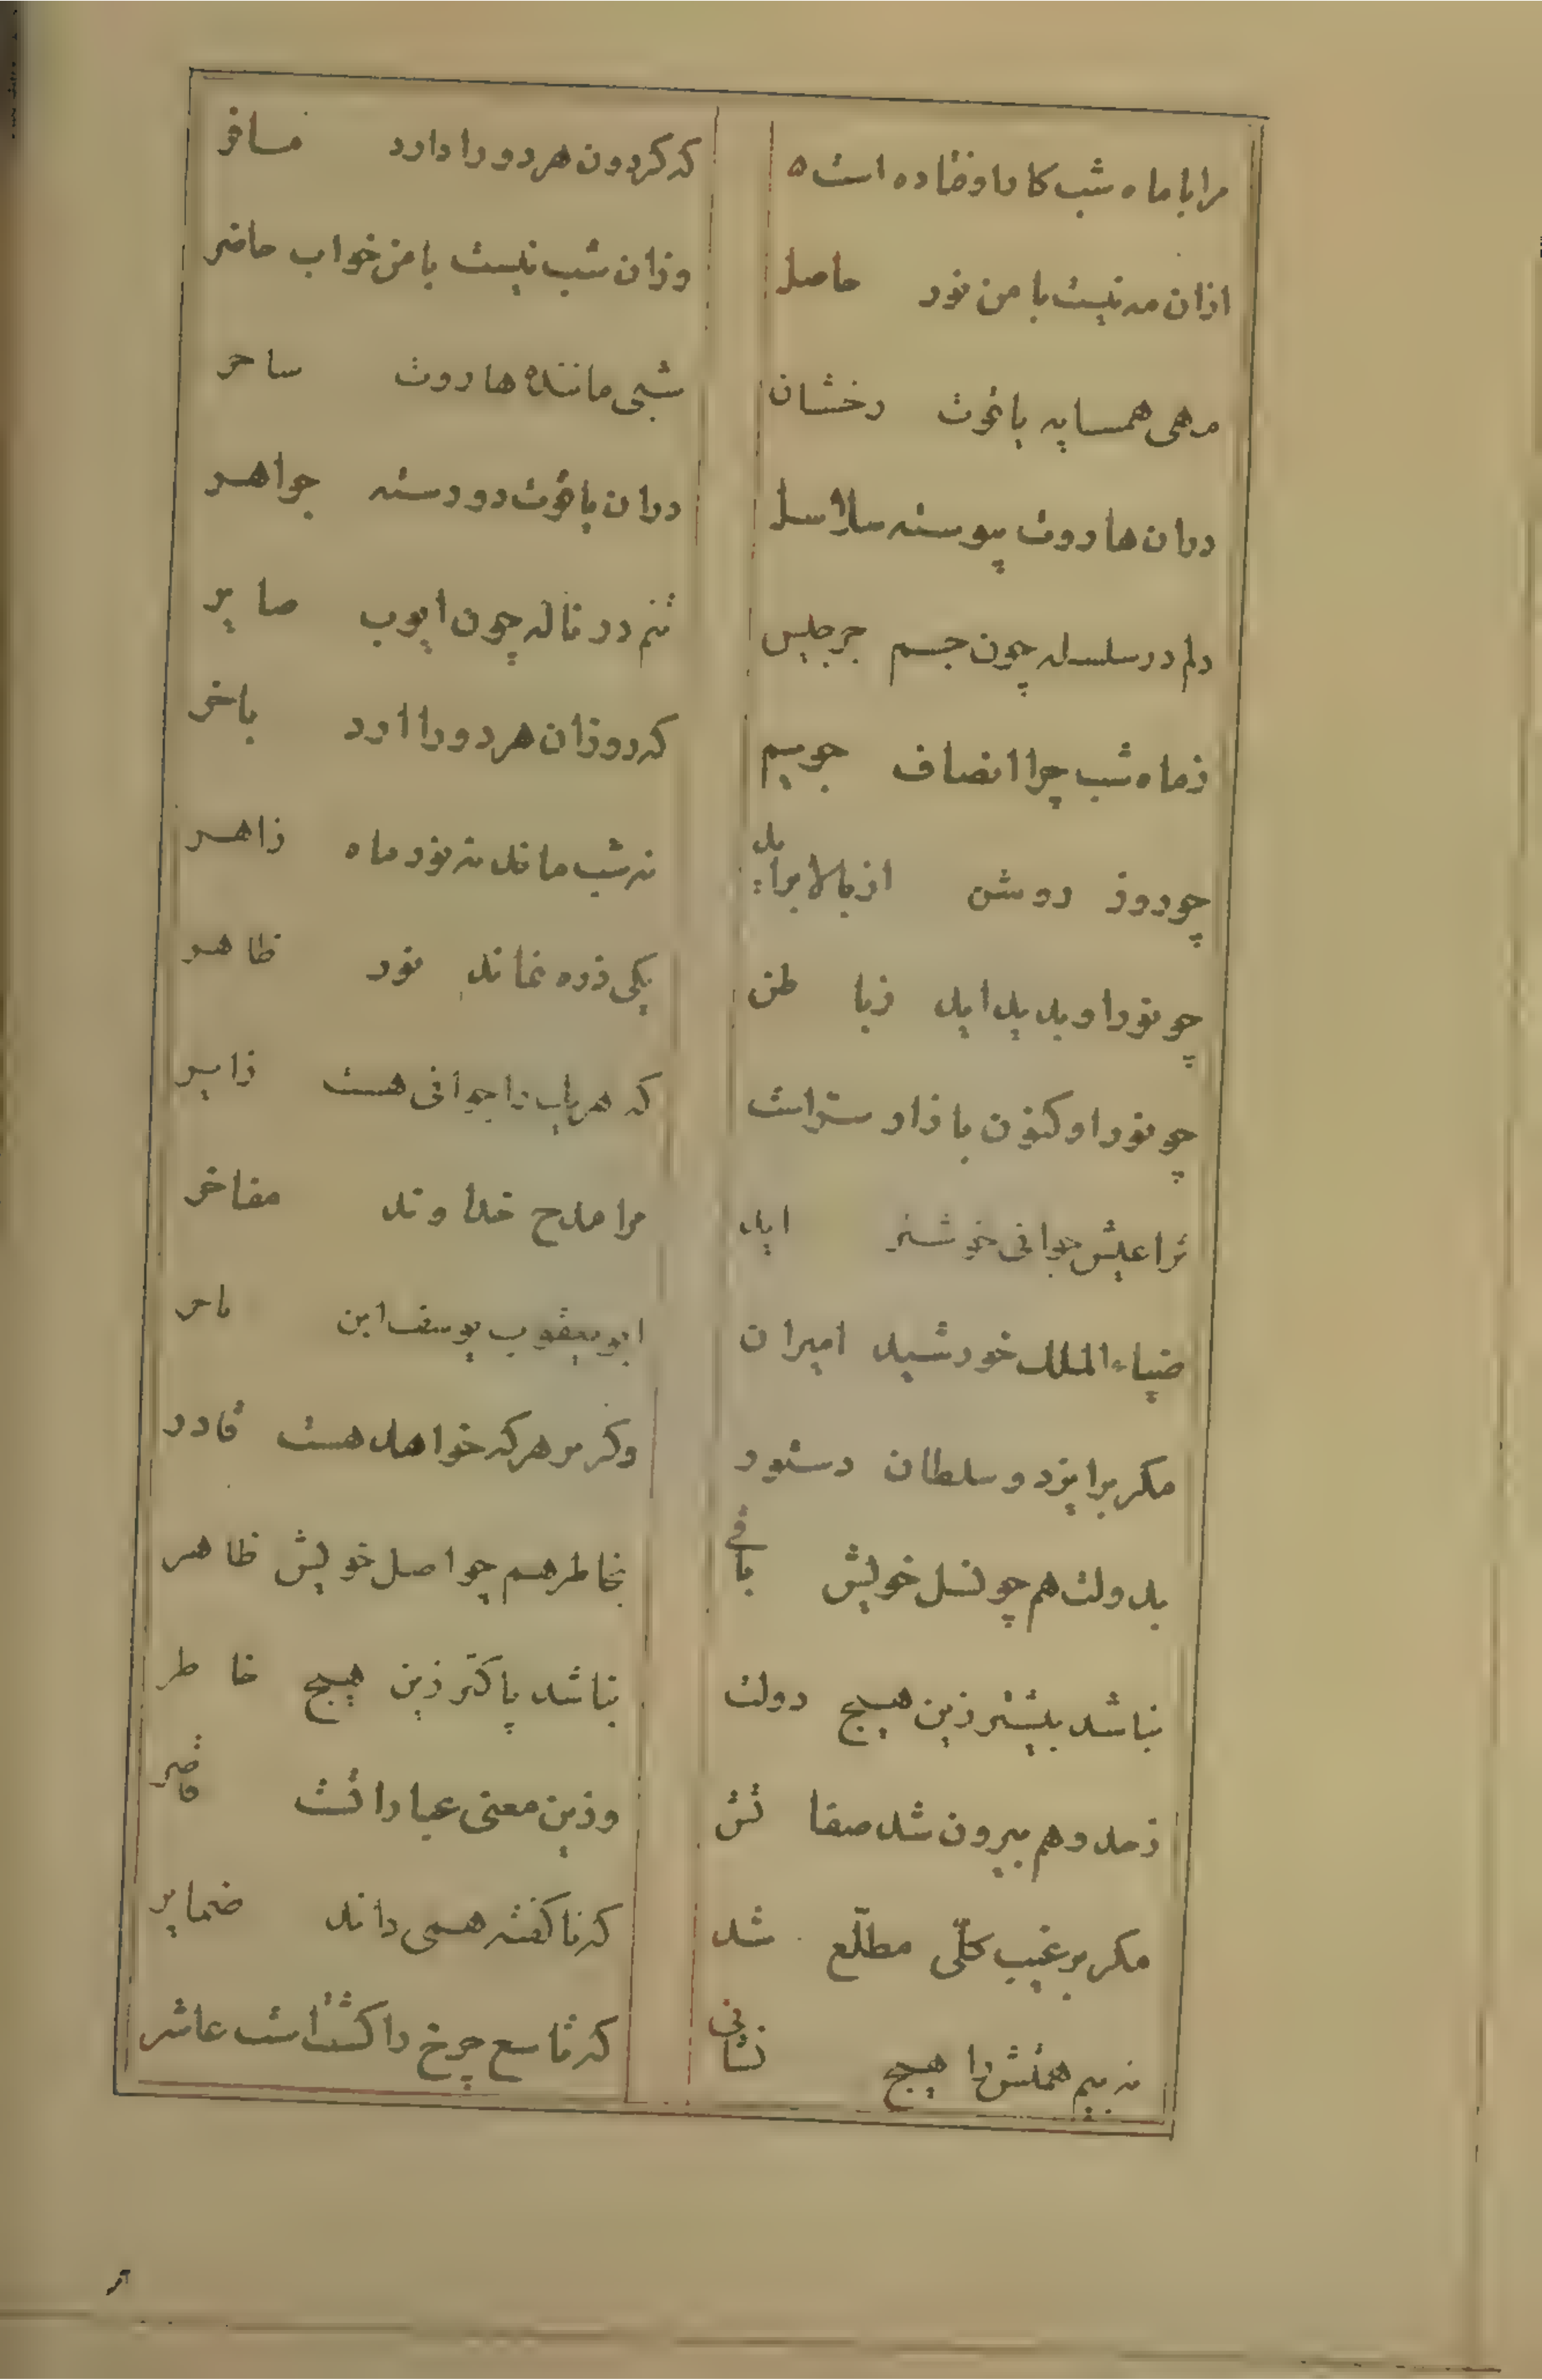 مرا با ماه شب کار اوفتاده است ه
که کردون هر دو را دارد مسافر
ازان مه نیست با من نور حاصل
وزان شب نیست با من خواب حاضر
مهی همسایه یاقوت رخشان
شبی ماننده هاروت ساحر
دران هاروت پیوسته سلاسل
دران یاقوت دو دسته جواهر
دلم در سلسله چون جسم جرجلیس
تنم در ناله چون ایوب صابر
ز ماه شب چرا انصاف جویم
که روز ان هر دو را ارد باخر
چو روز روشن از بالا براید
نه شب ماند نه نور ماه زاهر
چو نور او بدید اید ز باطن
یکی ذره نماند نور ظاهر
چو نور او کنون بازار
که هر را جوانی هست زایر
ترا عیش جوانی خوشتر اید
مرا مدح خداوند مفاخر
ضیاء الملک خورشید امیران
ابو یعقوب یوسف ابن
مکر بر ایزد و سلطان دستور
وکر بر هر که خواهد هست قادر
بدولت هم چو نسل خویش باقی
بخاطر هم چو اصل خویش ظاهر
نباشد بیشتر زین هیچ دولت
نباشد پاکتر زین هیچ خاطر
ز حد وهم بیرون شد صفاتش
وزین معنی عباراتست قاصر
مکر بر غیب کلّی مطلّع شد
که ناکفته همی داند ضمایر
نه بیم همتش را هیچ ثانی
که تاسع چرخ را کشتست عاشر